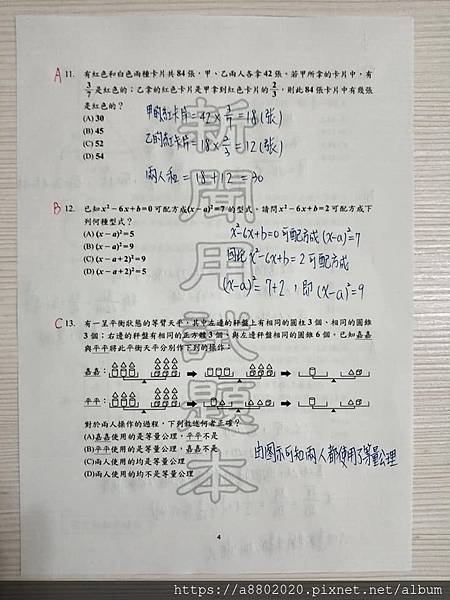 A 11. 有紅色和白色兩種卡片共84張,甲、乙兩人各拿42張。若甲所拿的卡片中,有
3/7 是紅色的;乙拿的紅色卡片是甲拿到紅色卡片的 2/3,則此84張卡片中有幾張
是紅色的?
(A) 30
(B) 45
(C) 52
(D) 54
甲的紅卡片=42×3/7=18(張)
乙的紅卡片=18×2/3=12(張)
兩人和=18+12=30
B 12. 已知x²-6x+b=0可配方成(x-a)²=7的型式,請問x²-6x+b=2可配方成下
列何種型式?
(A) (x-a)²=5
(B) (x-a)²=9
(C) (x-a+2)²=9
(D) (x-a+2)²=5
x²-6x+b=0可配方成(x-a)²=7
因此x²-6x+b=2可配方成
(x-a)²=7+2,即(x-a)²=9
C 13. 有一呈平衡狀態的等臂天平,其中左邊的秤盤上有相同的圓柱3個、相同的圓錐
3個;右邊的秤盤有相同的正方體3個、與左邊秤盤相同的圓錐6個。已知嘉嘉
與平平將此平衡天平分別作下列的操作:
嘉嘉:
平平:
對於兩人操作的過程,下列敘述何者正確?
(A)嘉嘉使用的是等量公理,平平不是
(B)平平使用的是等量公理,嘉嘉不是
(C)兩人使用的均是等量公理
(D)兩人使用的均不是等量公理
由圖示可知兩人都使用了等量公理
新聞用試題本
4
https://a8802020.pixnet.net/album